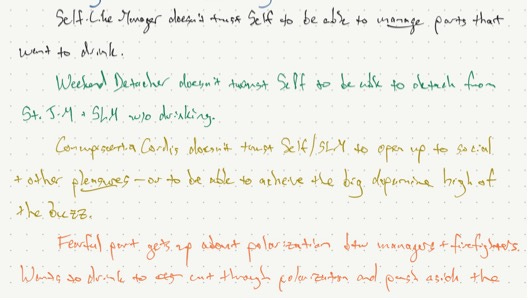 Self-Like Manager doesn't trust Self to be able to manage parts that
want to drink.
Weekend Detacher doesn't trust Self to be able to detach from
St. J.M + SLM w/o drinking.
Concupiscentia Cordis doesn't trust Self/SLM to open up to social
+ other pleasures - or to be able to achieve the big dopamine high of
the buzz.
Fearful part gets up about polarization btw managers + firefighters.
Wants to drink to cut through polarization and push aside the